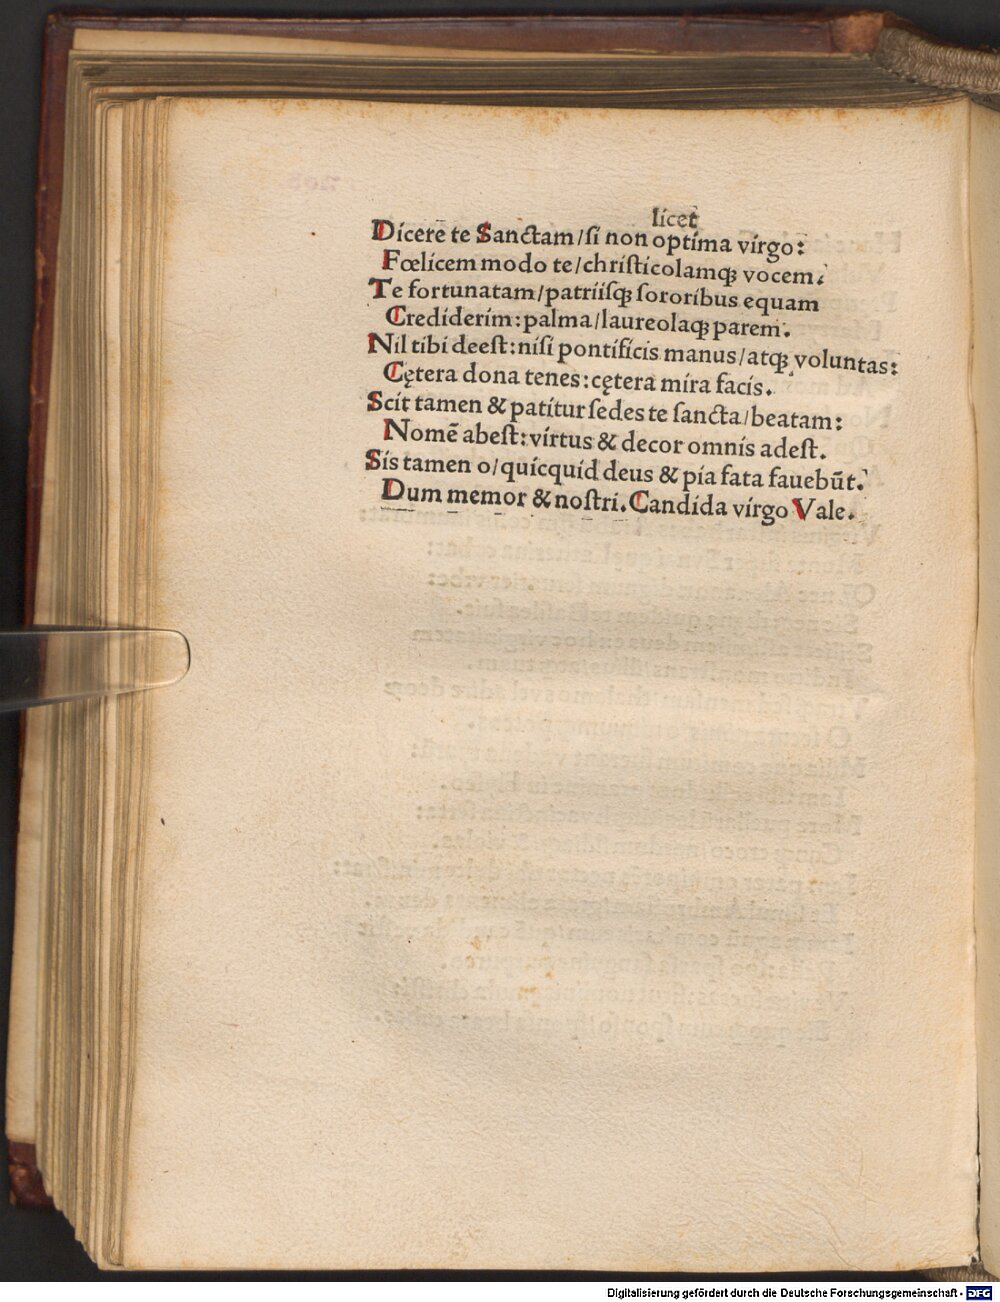 licet
Dicere te Sanctam/si non optima virgo:
Fœlicem modo te/christicolamqꝫ vocem.
Te fortunatam/patriisqꝫ sororibus equam
Crediderim: palma/laureolaqꝫ parem.
Nil tibi deest: nisi pontificis manus/atqꝫ voluntas:
Cętera dona tenes: cętera mira facis.
Scit tamen & patitur sedes te sancta/beatam:
Nomē abest: virtus & decor omnis adest.
Sis tamen o/quicquid deus & pia fata fauebūt.
Dum memor & nostri. Candida virgo Vale.
Digitalisierung gefördert durch die Deutsche Forschungsgemeinschaft - DFG